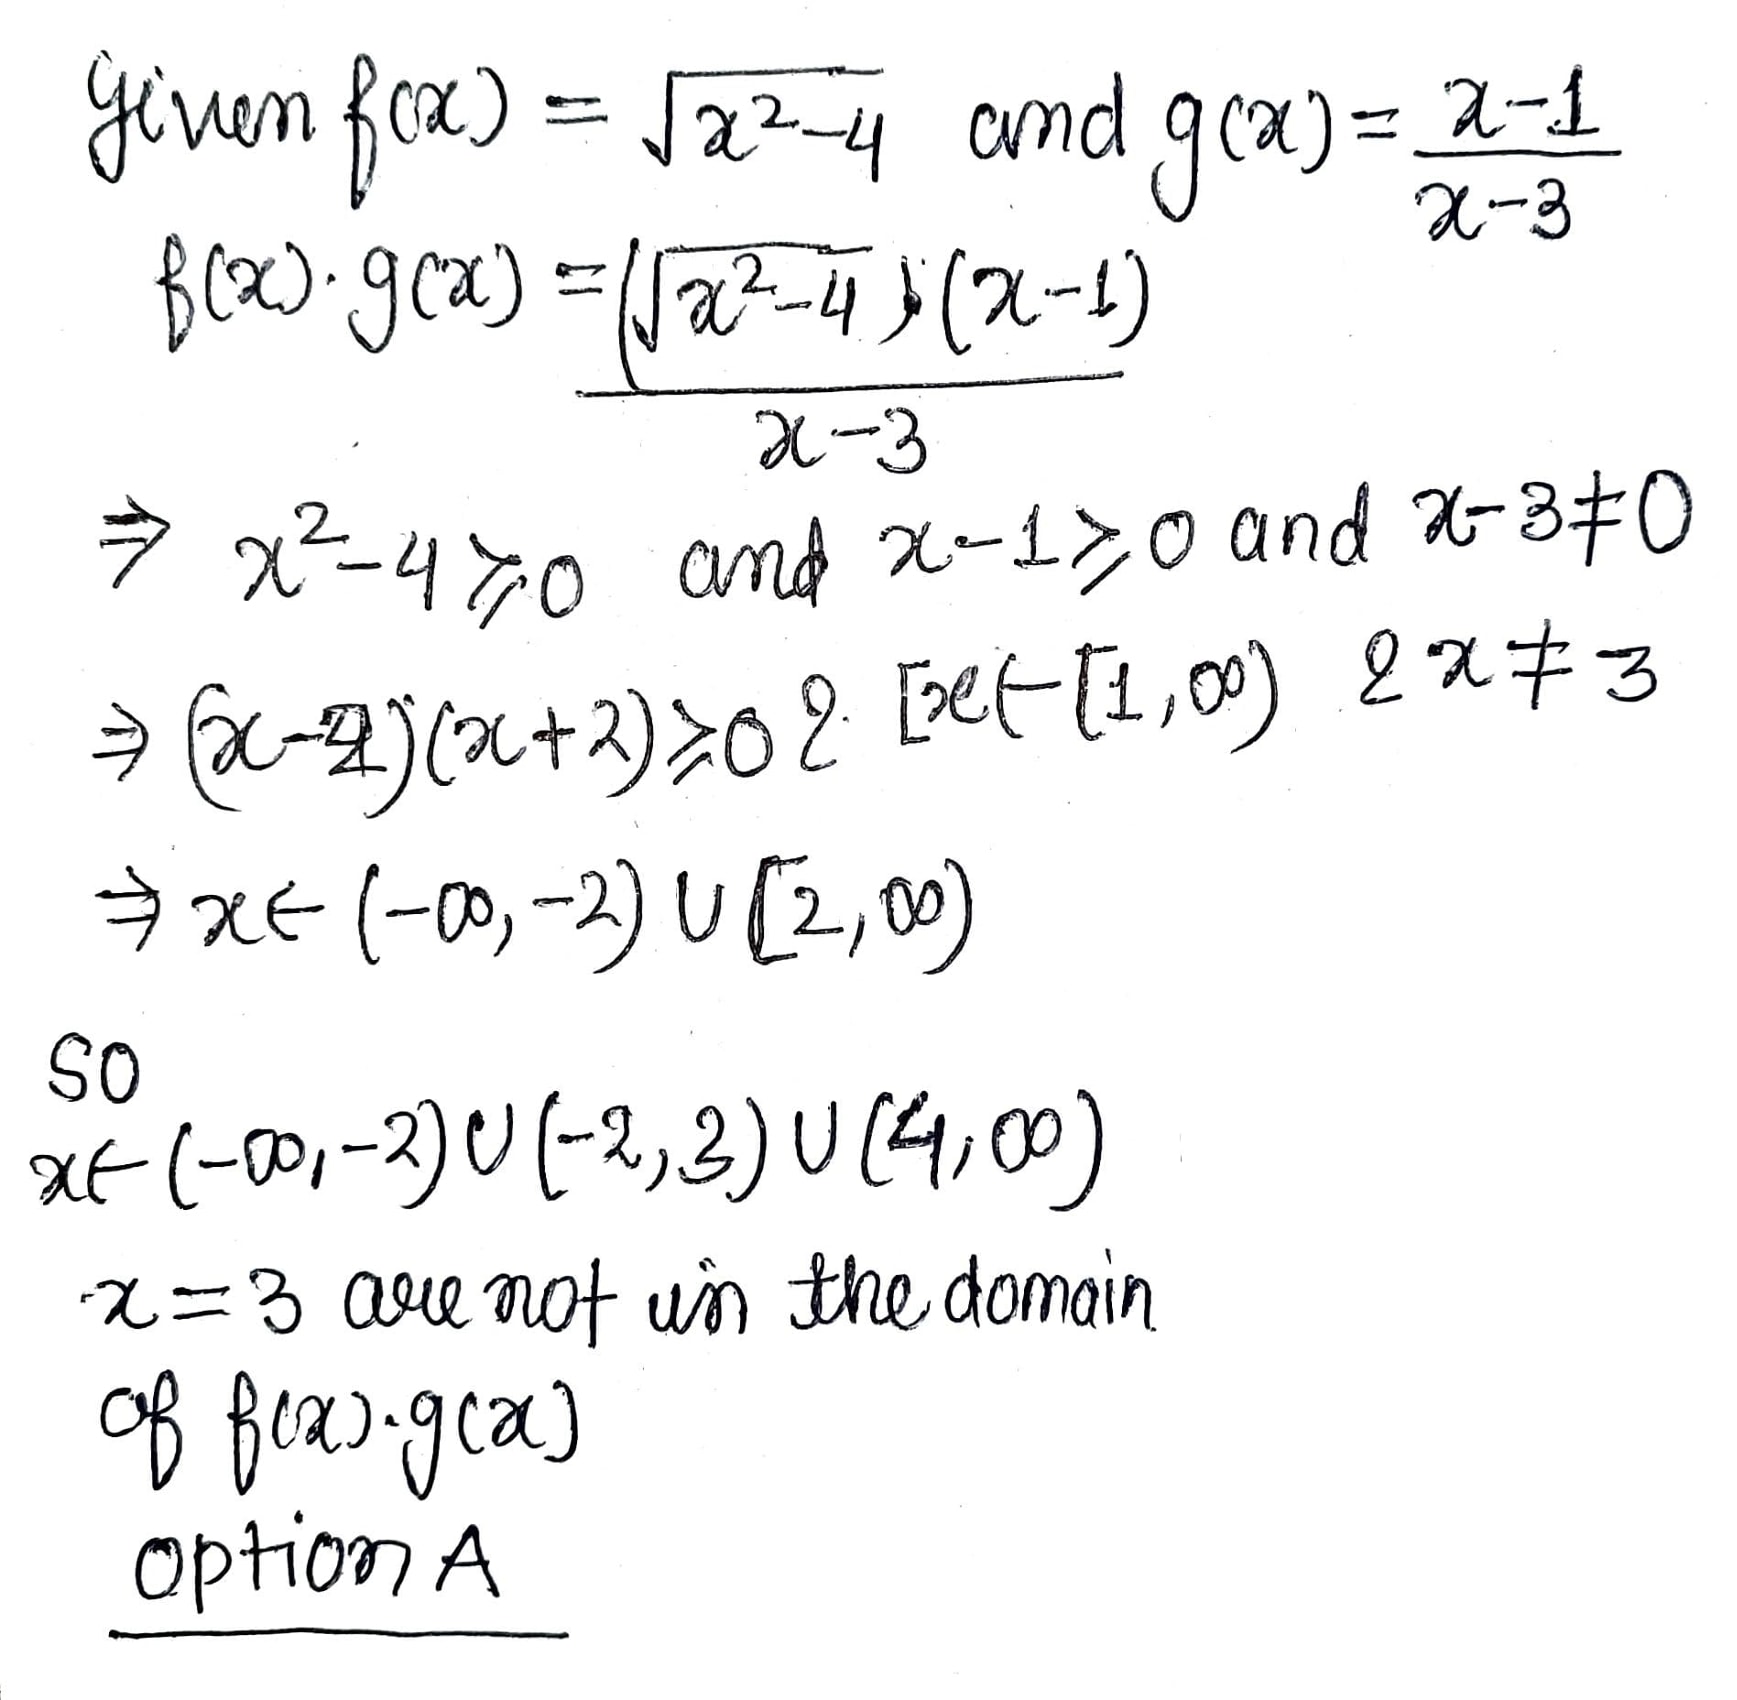 Given f(x) = √x²-4 and g(x) = x-1 / x-3
f(x).g(x) = (√x²-4).(x-1) / x-3
⇒ x²-4 ≥ 0 and x-1 ≥ 0 and x-3 ≠ 0
⇒ (x-2)(x+2) ≥ 0 & [x∈[1,∞) & x ≠ 3
⇒ x∈ (-∞,-2) ∪ [2,∞)
SO
x∈ (-∞,-2) ∪ (-2,3) ∪ (4,∞)
x = 3 are not in the domain
of f(x).g(x)
option A